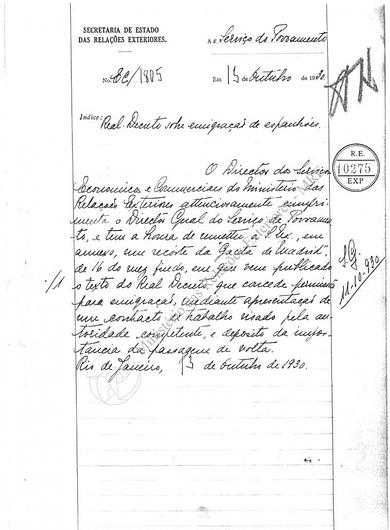 SECRETARIA DE ESTADO
DAS RELAÇÕES EXTERIORES.
Ao Serviço do Povoamento
No. EC/1805
Em 13 de Outubro de 1930.
Indice: Real Decreto sobre emigração de espanhóes.
R.E.
10275
EXP
O Director dos Serviços
Economicos e Commerciaes do Ministerio das
Relações Exteriores attenciosamente cumpri-
menta o Director Geral do Serviço de Povoamen-
to, e tem a honra de remetter a S. Ex., em
annexo, um recorte da "Gaceta de Madrid",
de 16 do mez findo, em que vem publicado
o texto do Real Decreto que concede permissão
para emigração, mediante apresentação de
um contracto de trabalho visado pela au-
toridade competente, e deposito da impor-
tancia da passagem de volta.
Rio de Janeiro, 13 de Outubro de 1930.
/1
S.G.
11-10-930